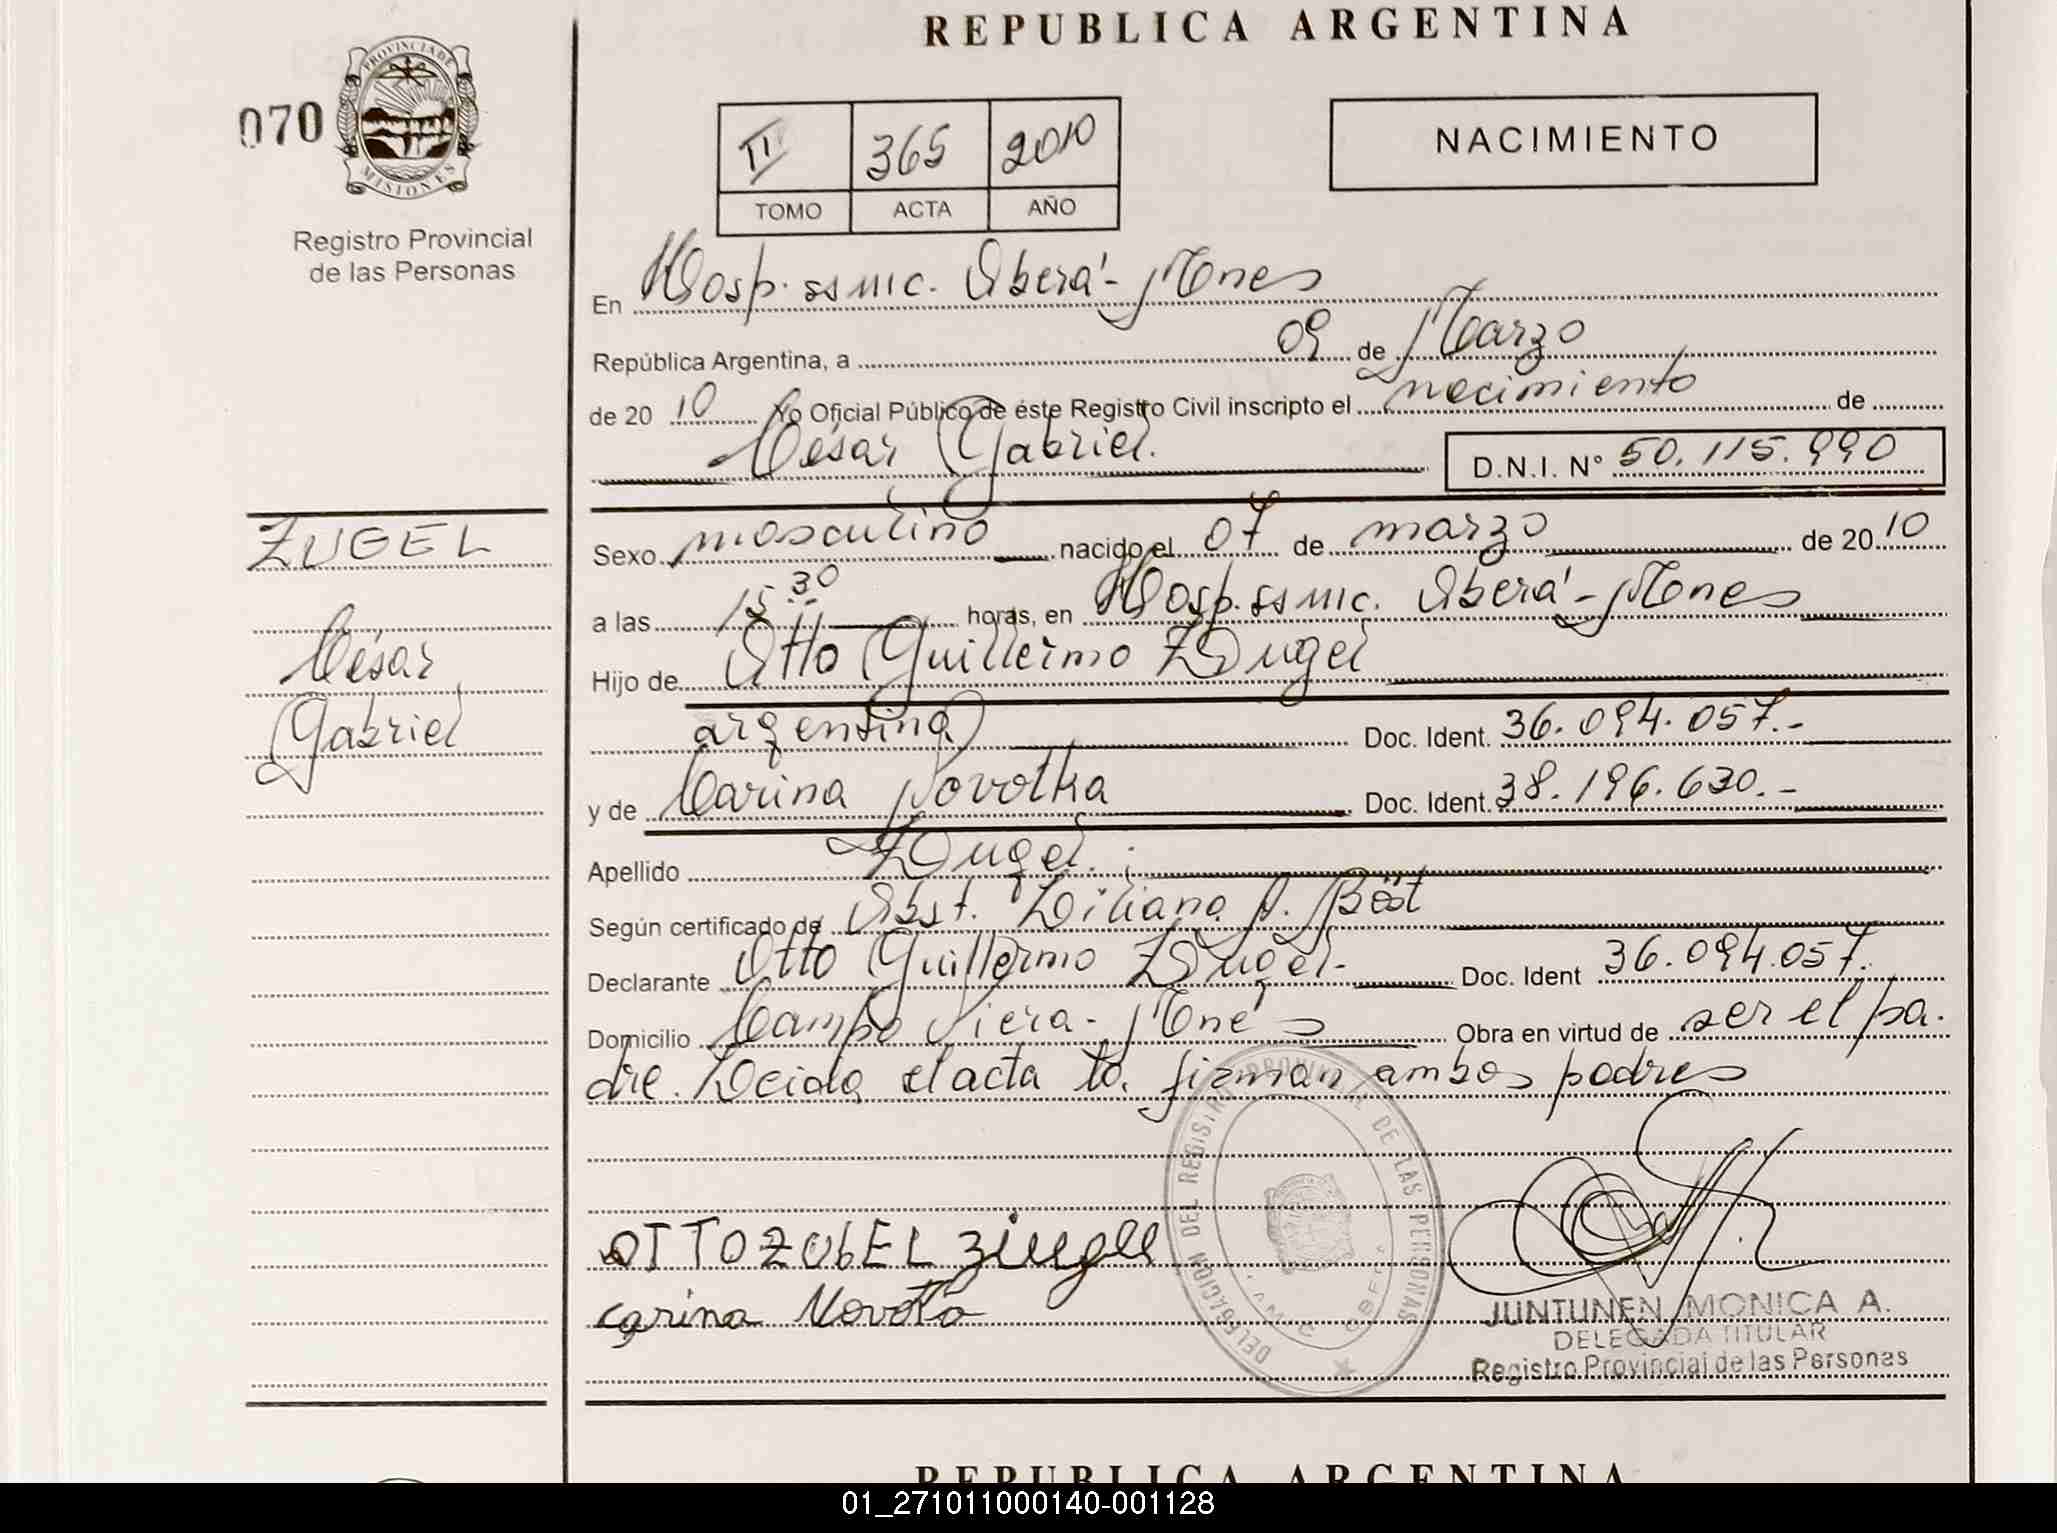 REPUBLICA ARGENTINA
070
PROVINCIA DE MISIONES
Registro Provincial
de las Personas
II 365 2010
TOMO ACTA AÑO
NACIMIENTO
En Hosp. ss mc. Oberá - Mnes
República Argentina, a 09 de Marzo
de 20 10 Yo Oficial Público de éste Registro Civil inscripto el nacimiento de
César Gabriel. D.N.I. N° 50.115.990
ZUGEL
César
Gabriel
Sexo masculino nacido el 07 de marzo de 20 10
a las 15.30 horas, en Hosp. ss mc. Oberá - Mnes
Hijo de Otto Guillermo Zugel
argentina Doc. Ident. 36.094.057.-
y de Carina Novotka Doc. Ident. 38.196.630.-
Apellido Zugel.
Según certificado de Obst. Liliana A.
Declarante Otto Guillermo Zugel- Doc. Ident 36.094.057.
Domicilio Campo Viera - Mnes Obra en virtud de ser el pa.
dre. Leida el acta la firman ambos padres
OTTO ZUGEL
Carina Novotka
DELEGACION DEL REGISTRO PROVINCIAL DE LAS PERSONAS
JUNTUNEN MONICA A.
DELEGADA TITULAR
Registro Provincial de las Personas
REPUBLICA ARGENTINA
01_271011000140-001128